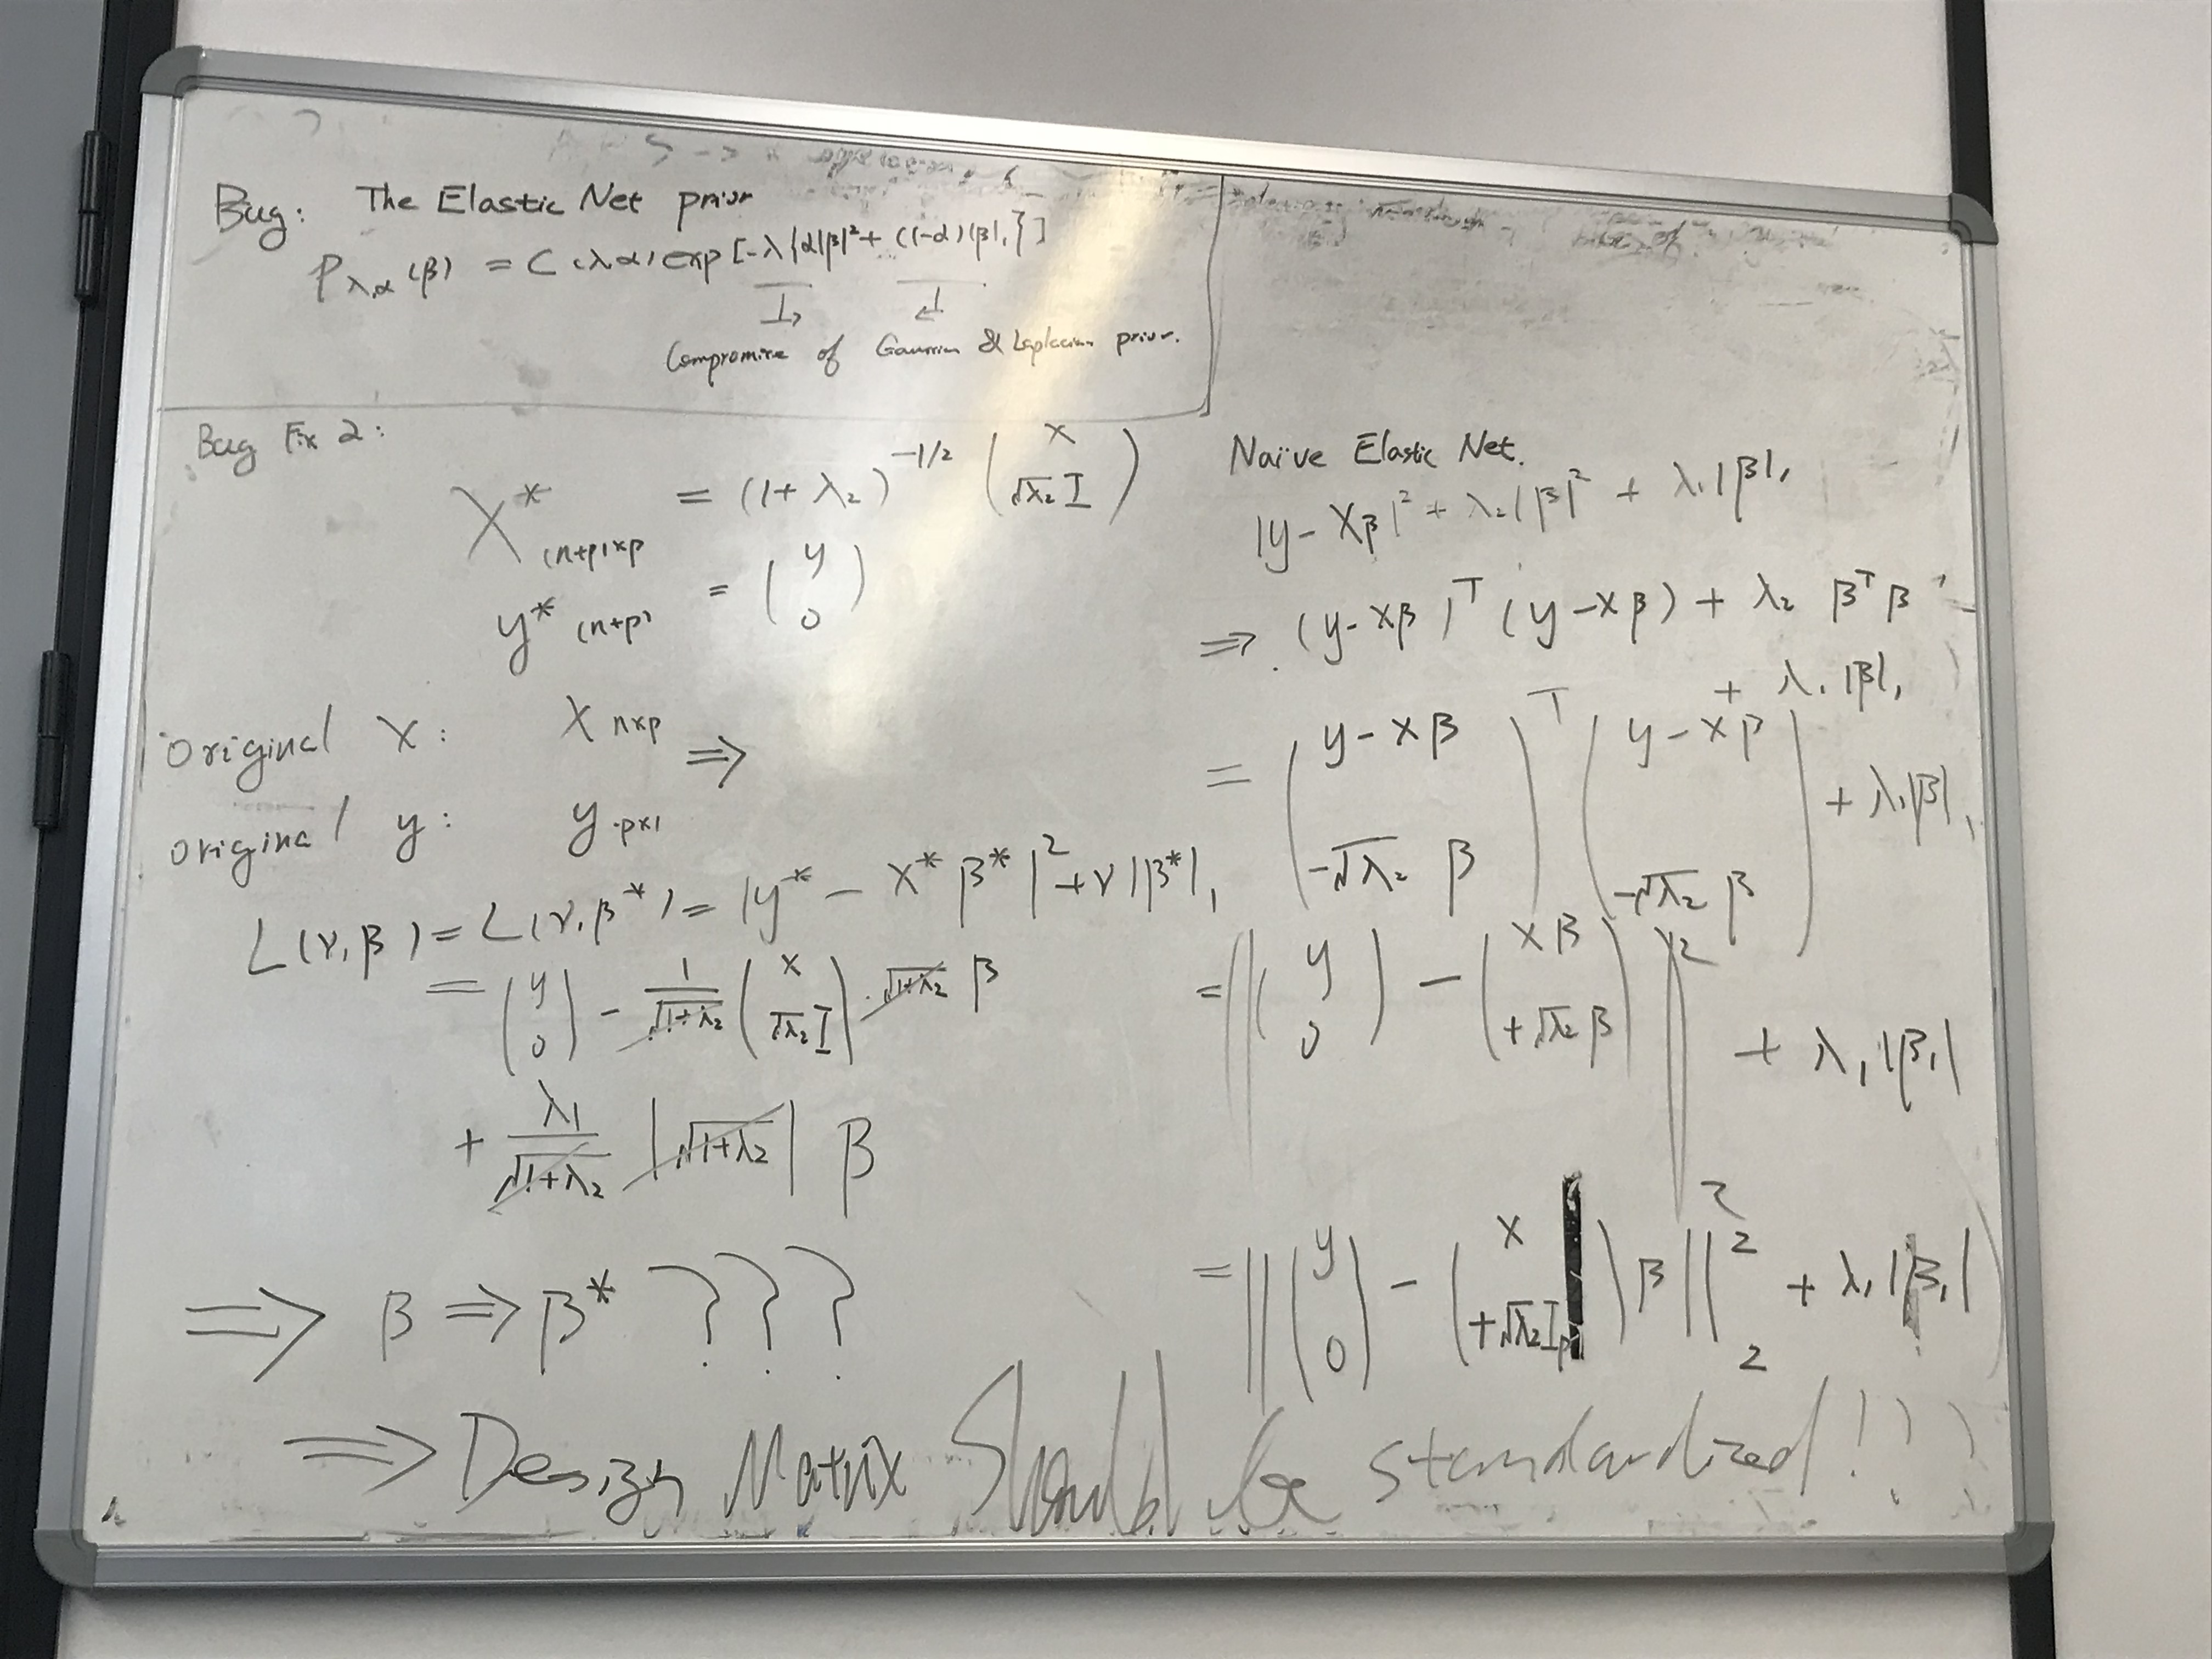 Bug: The Elastic Net prior
P λ,α (β) = C(λ,α) exp[-λ{α|β|² + (1-α)|β|₁}]
Compromise of Gaussian & Laplacian prior.
Bug Fix 2:
X* (n+p)×p = (1+λ₂)^{-1/2} ( X
√λ₂ I )
y* (n+p) = ( y
0 )
Original X: X n×p ⇒
Original y: y p×1
L(γ,β) = L(γ,β*) = |y* - X*β*|² + γ|β*|₁
= ( y
0 ) - 1/√(1+λ₂) ( X
√λ₂ I ) · √(1+λ₂) β
+ λ₁/√(1+λ₂) |√(1+λ₂)| β
⇒ β ⇒ β* ???
Naïve Elastic Net.
|y - Xβ|² + λ₂|β|² + λ₁|β|₁
⇒ (y-Xβ)ᵀ(y-Xβ) + λ₂ βᵀβ
+ λ₁|β|₁
= ( y-Xβ
-√λ₂ β )ᵀ ( y-Xβ
-√λ₂ β ) + λ₁|β|₁
= ||( y
0 ) - ( Xβ
+√λ₂ β )||² + λ₁|β₁|
= ||( y
0 ) - ( X
+√λ₂ Ip ) β||²₂ + λ₁|β₁|
⇒ Design Matrix Should be standardized!!!